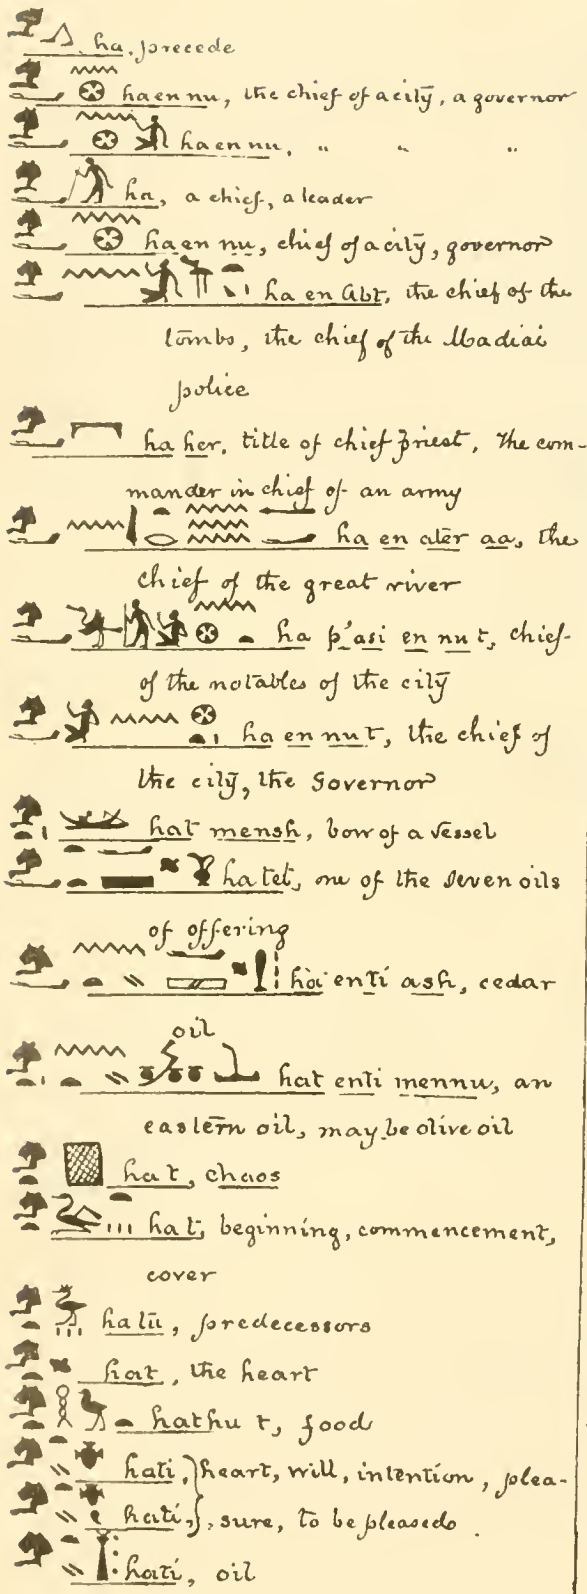 ha, precede
haennu, the chief of a city, a governor
haennu, " " "
ha, a chief, a leader
haen nu, chief of a city, governor
ha en Abt, the chief of the
tombs, the chief of the Madiai
police
ha her, title of chief priest, the com-
mander in chief of an army
ha en ater aa, the
chief of the great river
ha p'asi en nu t, chief
of the notables of the city
ha en nu t, the chief of
the city, the Governor
hat mensh, bow of a vessel
ha tet, one of the seven oils
of offering
ha enti ash, cedar
oil
hat enti mennu, an
eastern oil, may be olive oil
ha t, chaos
ha t, beginning, commencement,
cover
hatu, predecessors
hat, the heart
hathu t, food
hati, } heart, will, intention, plea-
hati, } sure, to be pleased.
hati, oil